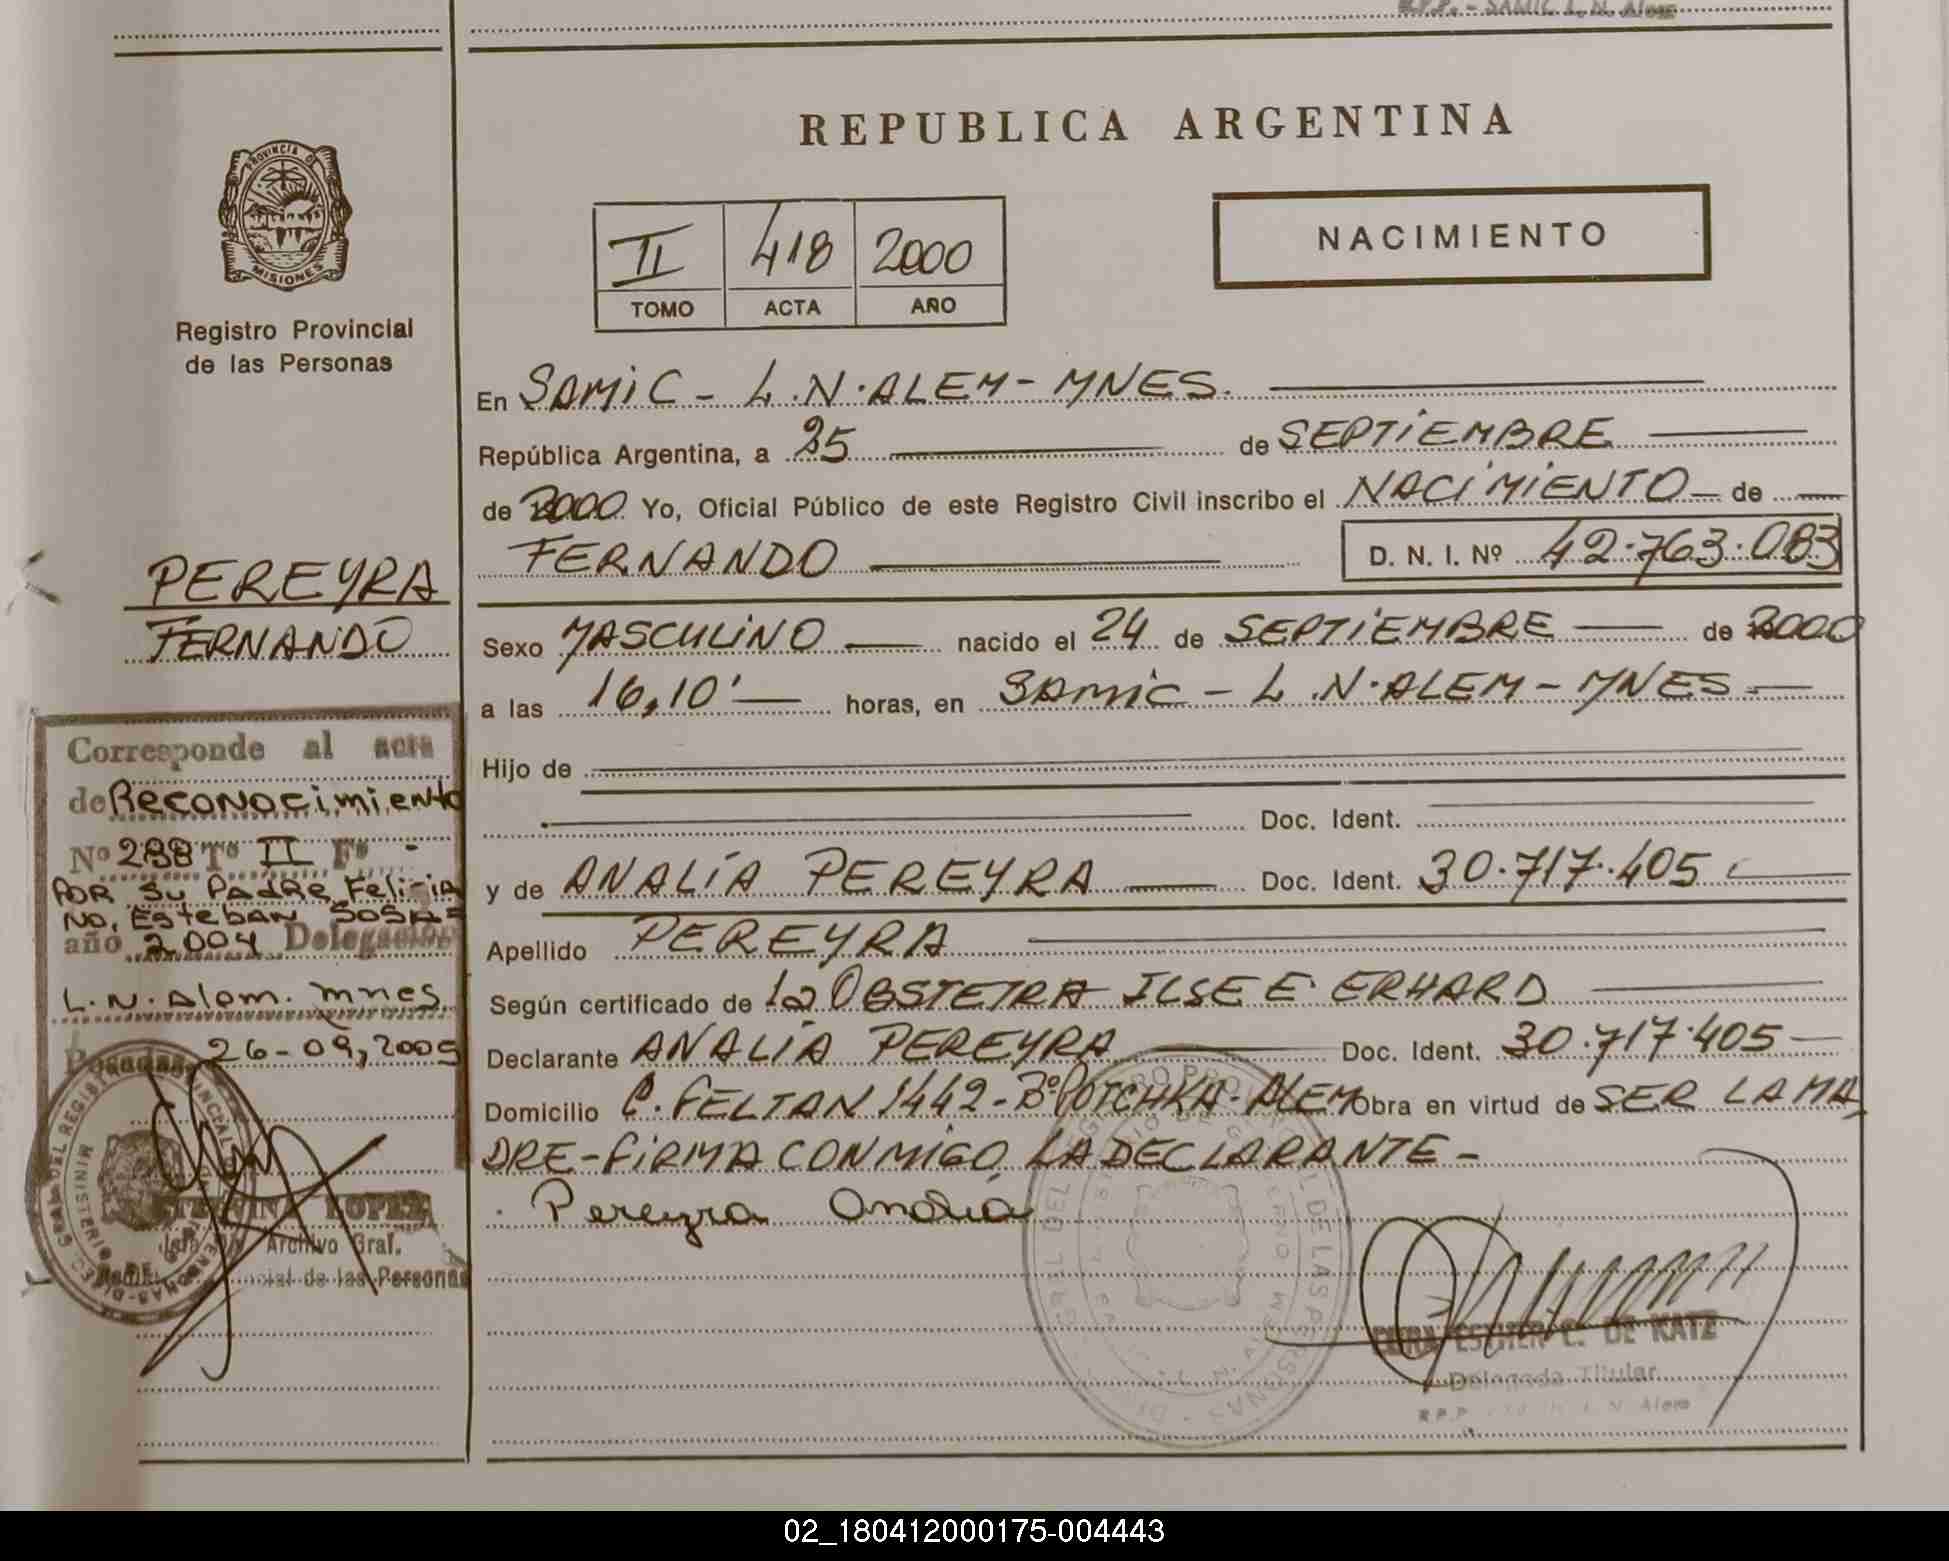 R.P.P. - SAMIC L. N. Alem
REPUBLICA ARGENTINA
PROVINCIA DE
MISIONES
Registro Provincial
de las Personas
II 418 2000
TOMO ACTA AÑO
NACIMIENTO
En SAMIC - L.N. ALEM - MNES.
República Argentina, a 25 de SEPTIEMBRE
de 2000 Yo, Oficial Público de este Registro Civil inscribo el NACIMIENTO de
FERNANDO D. N. I. Nº 42.763.083
Sexo MASCULINO nacido el 24 de SEPTIEMBRE de 2000
a las 16,10' horas, en SAMIC - L.N. ALEM - MNES
Hijo de
Doc. Ident.
y de ANALÍA PEREYRA Doc. Ident. 30.717.405
Apellido PEREYRA
Según certificado de la OBSTETRA ILSE E. ERHARD
Declarante ANALÍA PEREYRA Doc. Ident. 30.717.405
Domicilio C. FELTAN 1442 - Bº POTCHKA - ALEM Obra en virtud de SER LA MA
DRE - FIRMA CONMIGO LA DECLARANTE -
Pereyra Analia
DE KATZ
Delegada Titular
R.P.P. L. N. Alem
PEREYRA
FERNANDO
Corresponde al acta
de Reconocimiento
Nº 288 Tº II Fº -
POR SU PADRE Felicia
NO, Esteban SOSA =
año 2004 Delegación
L.N. Alem. mnes
Posadas, 26-09, 2005
LOPEZ
Jefe Archivo Gral.
de las Personas
02_180412000175-004443